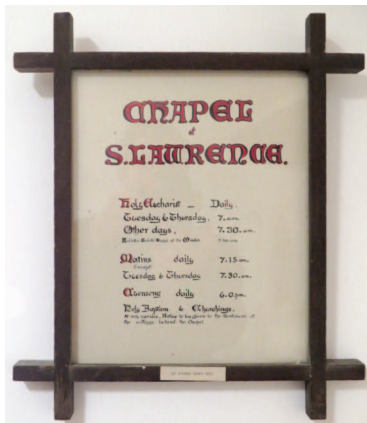 CHAPEL
of
S. LAWRENCE.
Holy Eucharist — Daily.
Tuesday & Thursday. 7. a.m.
Other days, 7.30. a.m.
Matins daily 7.15 am.
Except
Tuesday & Thursday 7.30 am.
Evensong daily 6.0 pm.
Holy Baptism & Churchings.
the cottage behind the Chapel.